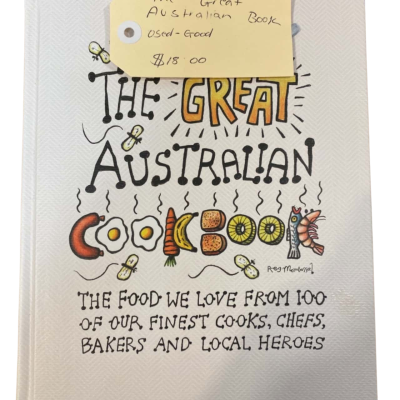 Great
Australian Book
Used - Good
$18.00
THE GREAT
AUSTRALIAN
COOKBOOK
THE FOOD WE LOVE FROM 100
OF OUR FINEST COOKS, CHEFS,
BAKERS AND LOCAL HEROES